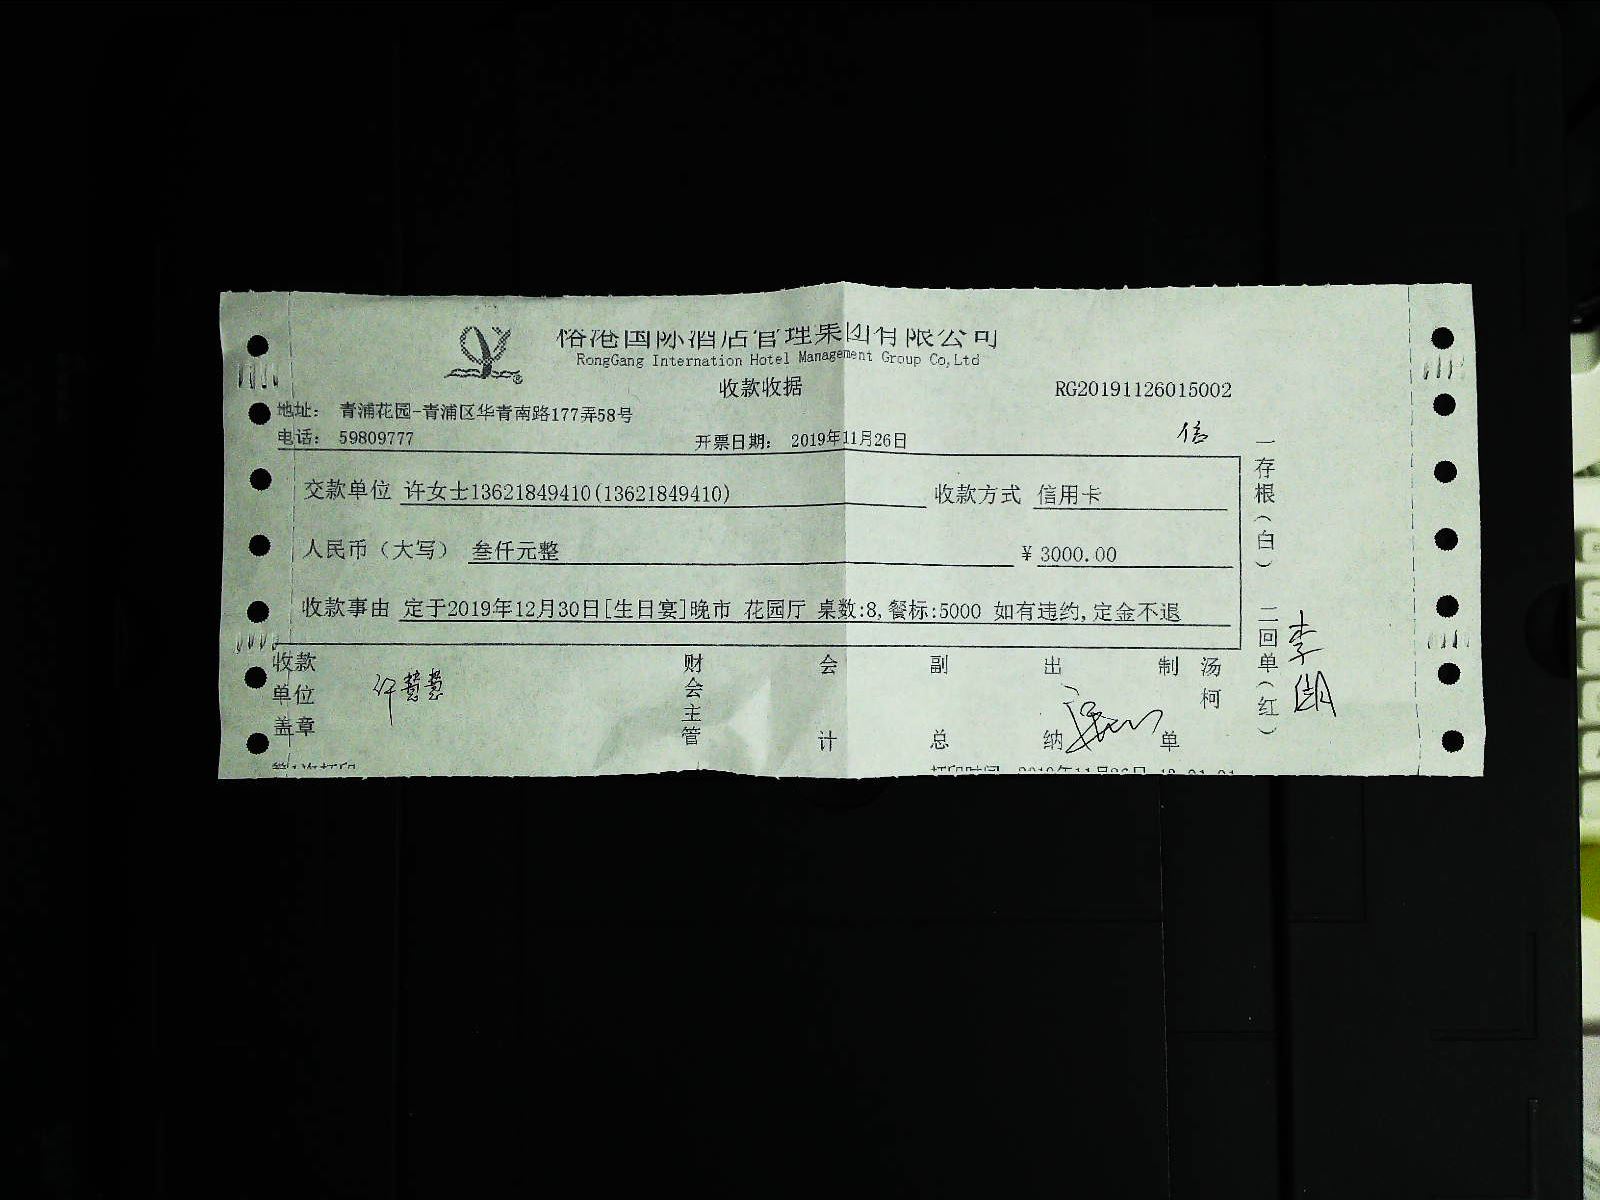 国际酒店管理集团有限公司
RongGang Internation Hotel Management Group Co,Ltd
收款收据
RG20191126015002
地址： 青浦花园-青浦区华青南路177弄58号
电话： 59809777
开票日期： 2019年11月26日
信
交款单位 许女士13621849410(13621849410)
收款方式 信用卡
人民币（大写） 叁仟元整
¥ 3000.00
收款事由 定于2019年12月30日[生日宴]晚市 花园厅 桌数:8,餐标:5000 如有违约,定金不退
收款单位盖章
财会主管
会计
副总
出纳
制单
汤柯
一存根（白） 二回单（红）
打印时间